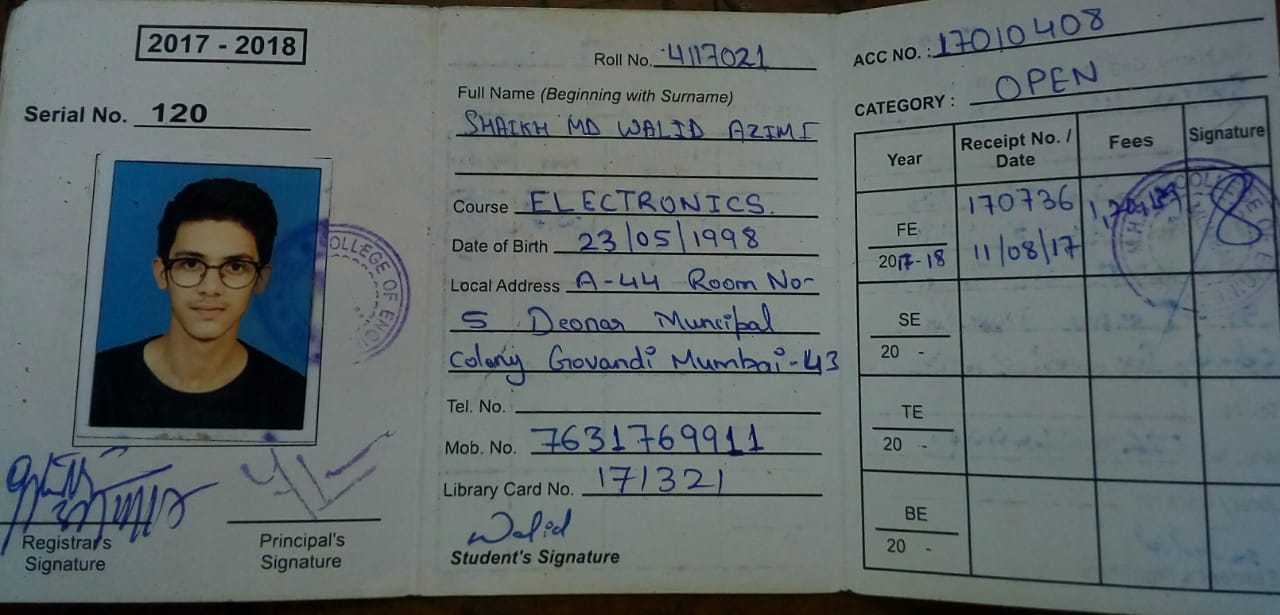 2017 - 2018
Serial No. 120
COLLEGE OF ENG
Registrar's
Signature
Principal's
Signature
Roll No. 4117021
Full Name (Beginning with Surname)
SHAIKH MD WALID AZIMI
Course ELECTRONICS.
Date of Birth 23/05/1998
Local Address A-44 Room No-
5 Deonar Muncipal
colony Govandi Mumbai-43
Tel. No.
Mob. No. 7631769911
Library Card No. 171321
Walid
Student's Signature
ACC NO. : 17010408
CATEGORY : OPEN
Year Receipt No. / Date Fees Signature
FE 2017-18 170736 11/08/17
SE 20 -
TE 20 -
BE 20 -